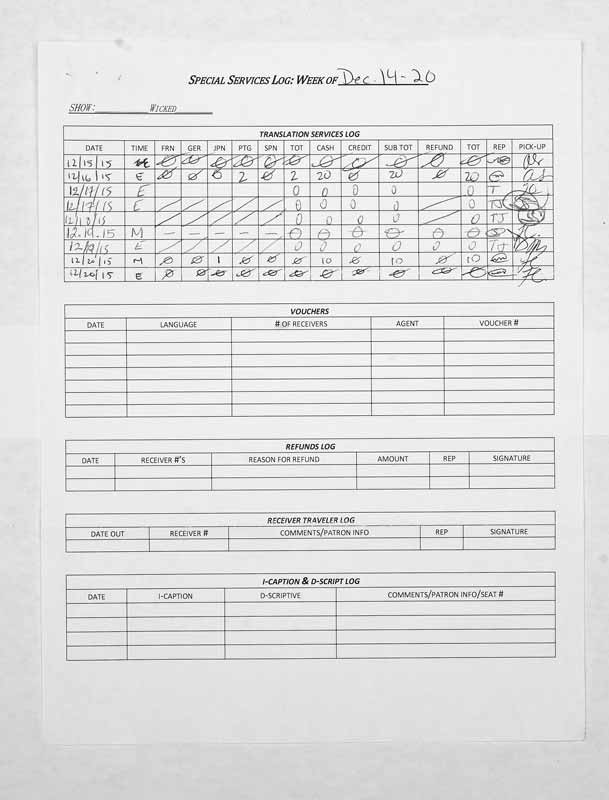 SPECIAL SERVICES LOG: WEEK OF Dec. 14-20
SHOW: WICKED
TRANSLATION SERVICES LOG
DATE TIME FRN GER JPN PTG SPN TOT CASH CREDIT SUB TOT REFUND TOT REP PICK-UP
12/15/15 0 0 0 0 0 0 0 0 0 0 0
12/16/15 E 0 0 0 2 0 2 20 0 20 0 20 as
12/17/15 E 0 0 0 0 0 T
12/17/15 E 0 0 0 0 0 TJ
12/18/15 0 0 0 0 0 TJ
12.19.15 M – – – – – 0 0 0 0 0 0
12/19/15 E 0 0 0 0 0 TJ
12/20/15 M 0 0 1 0 0 0 10 0 10 0 10
12/20/15 E 0 0 0 0 0 0 0 0 0 0 0
VOUCHERS
DATE LANGUAGE # OF RECEIVERS AGENT VOUCHER #
REFUNDS LOG
DATE RECEIVER #'S REASON FOR REFUND AMOUNT REP SIGNATURE
RECEIVER TRAVELER LOG
DATE OUT RECEIVER # COMMENTS/PATRON INFO REP SIGNATURE
I-CAPTION & D-SCRIPT LOG
DATE I-CAPTION D-SCRIPTIVE COMMENTS/PATRON INFO/SEAT #